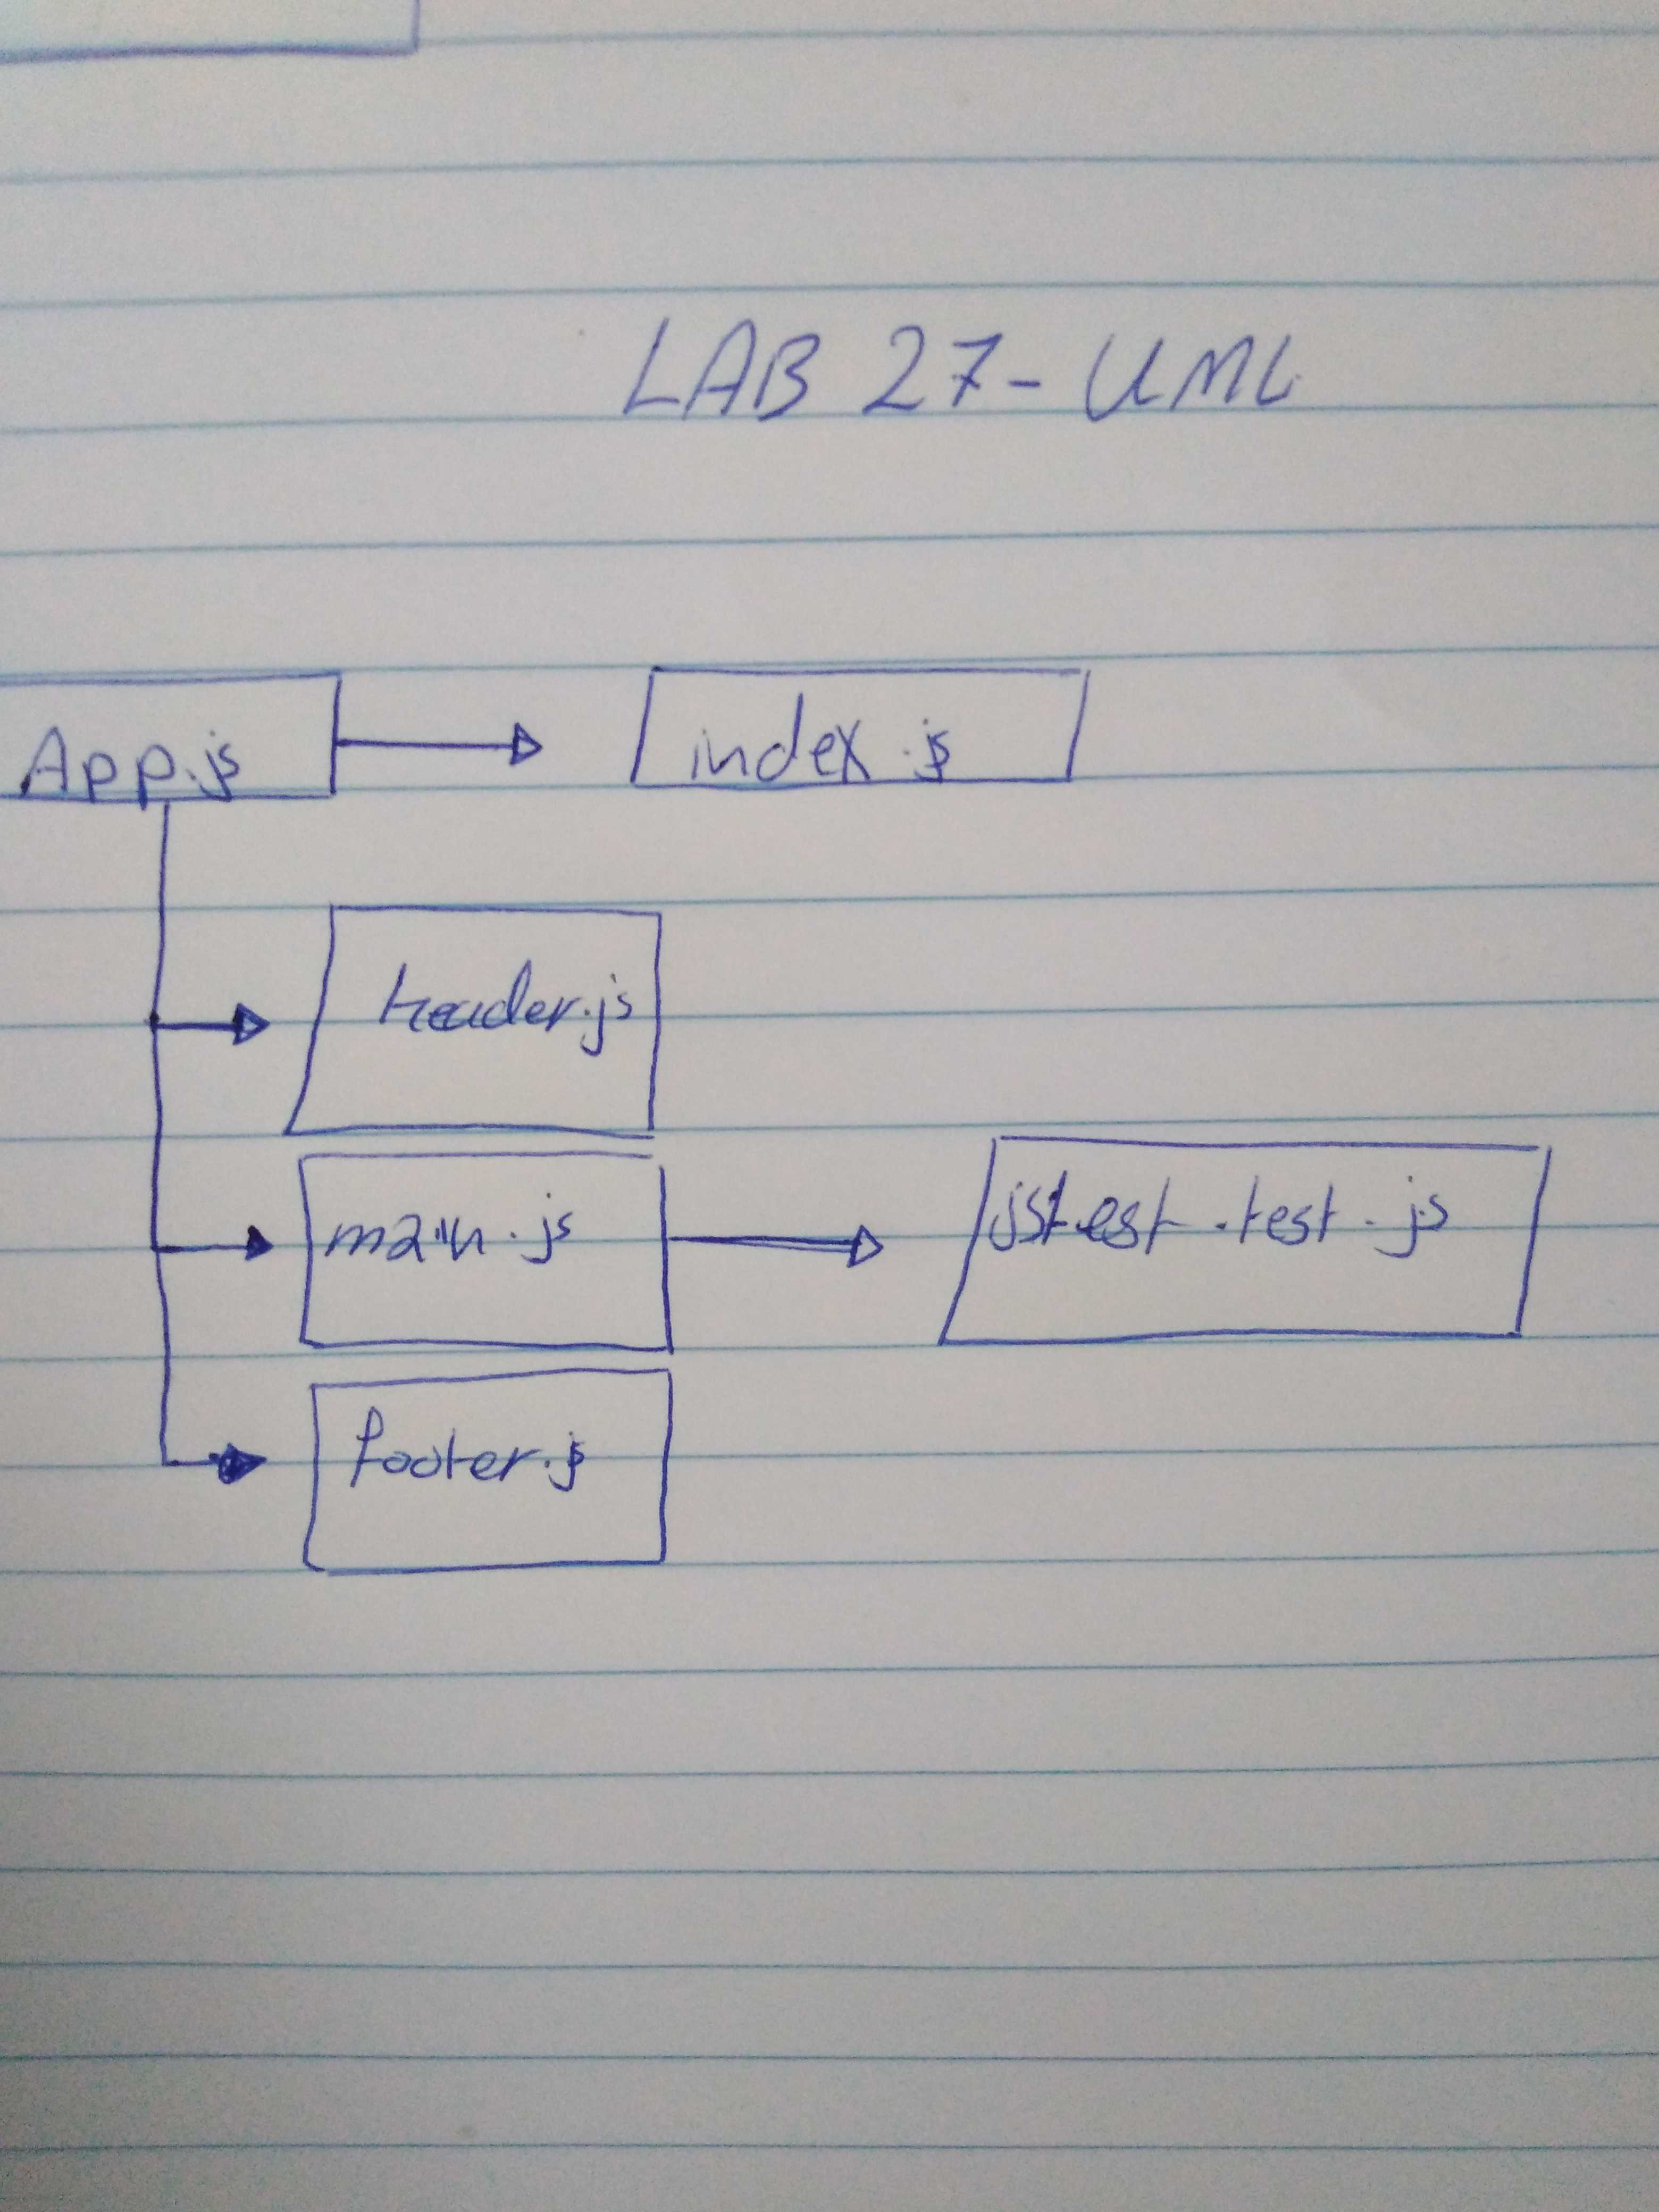 LAB 27- UML
App.js
index.js
header.js
main.js
jstest.test.js
footer.js